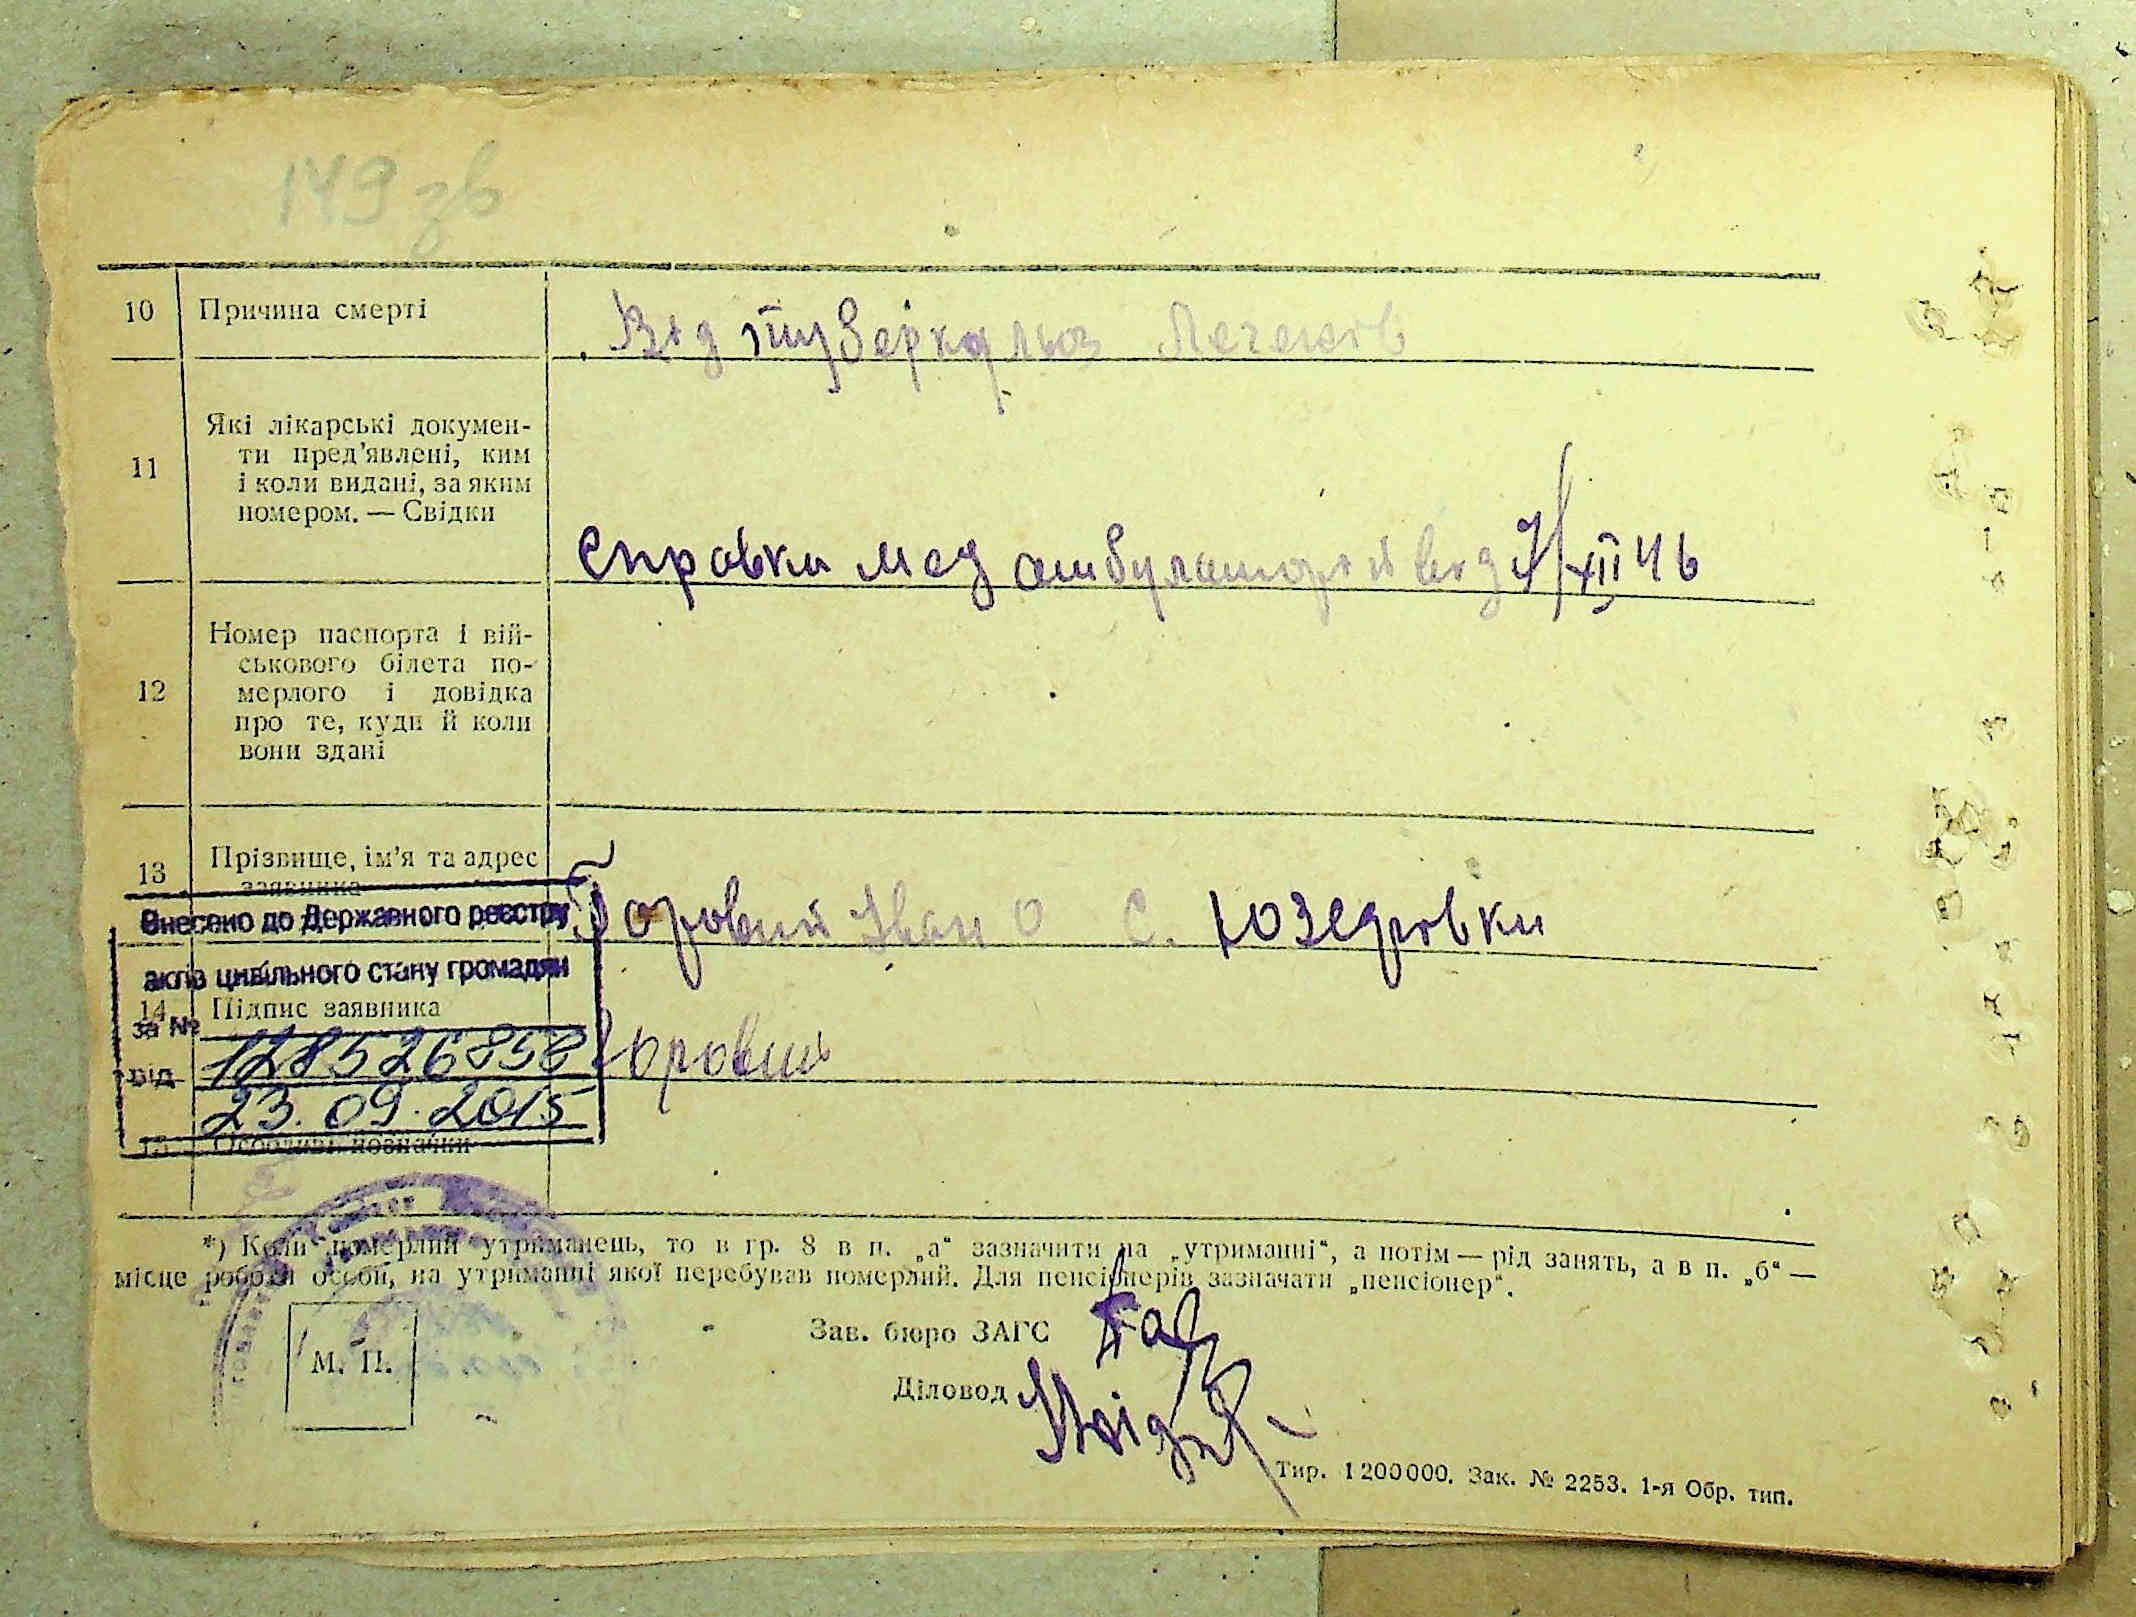 149 зв
10 Причина смерті Від туберкульоз Легенів
11 Які лікарські докумен-
ти пред'явлені, ким
і коли видані, за яким
номером. — Свідки
Справки мед амбулаторий від 7/XII 46
12 Номер паспорта і вій-
ськового білета по-
мерлого і довідка
про те, куди й коли
вони здані
13 Прізвище, ім'я та адрес
заявника
Боровий Іван О с. Юзефовки
Внесено до Державного реєстру
актів цивільного стану громадян
14 Підпис заявника
за № 128526858 Боровий
від 23.09.2015
15 Особливі позначки
*) Коли померлий утриманець, то в гр. 8 в п. „а“ зазначити на „утриманні“, а потім — рід занять, а в п. „б“ —
місце роботи особи, на утриманні якої перебував померлий. Для пенсіонерів зазначати „пенсіонер“.
Зав. бюро ЗАГС
М. П.
Діловод
Тир. 1200000. Зак. № 2253. 1-я Обр. тип.